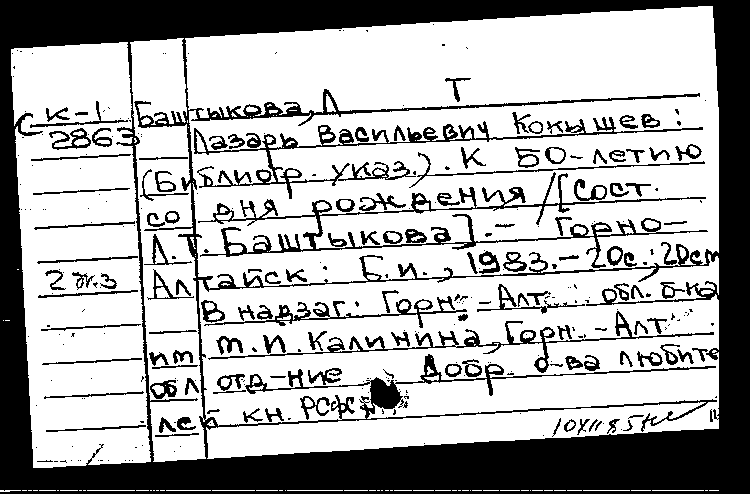 К-1 Баштыкова, Л Т
С 2863 Лазарь Васильевич Кокышев:
(Библиогр. указ.). К 50-летию
со дня рождения / [Сост.
Л.Т. Баштыкова]. - Горно-
2 эк.з Алтайск: Б.и., 1983. - 20с.; 20см
В надзаг.: Горн.-Алт. обл. б-ка
им. М.И. Калинина, Горн.-Алт
обл. отд-ние Добр. о-ва любите
лей кн. РСФСР